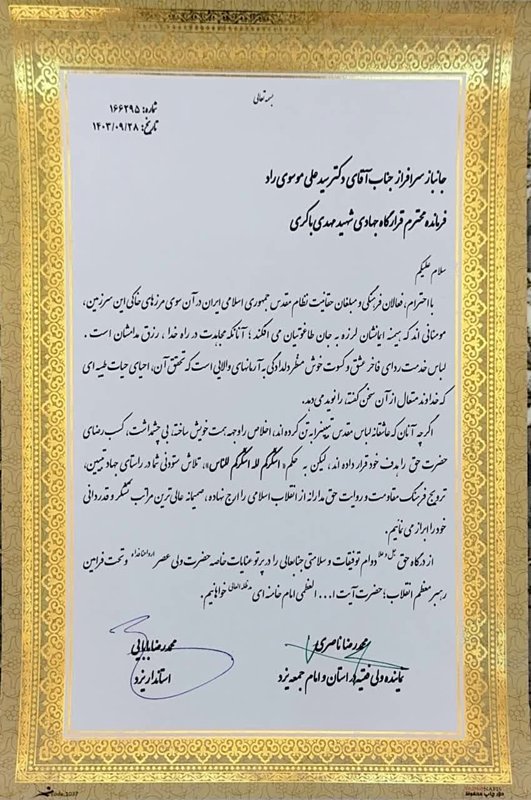 بسمه تعالی
شماره: ۱۶۶۲۹۵
تاریخ: ۱۴۰۳/۰۹/۲۸
جانباز سرافراز جناب آقای دکتر سید علی موسوی راد
فرمانده محترم قرارگاه جهادی شهید مهدی باکری
سلام علیکم
با احترام، فعالان فرهنگی و مبلغان حقانیت نظام مقدس جمهوری اسلامی ایران در آن سوی مرزهای خاکی این سرزمین،
مومنانی اند که هیمنه ایمانشان لرزه به جان طاغوتیان می افکند؛ آنانکه مجاهدت در راه خدا، رزق مدامشان است.
لباس خدمت ردای فاخر عشق و کسوت خوش منظر دلدادگی به آرمانهای والایی است که تحقق آن، احیای حیات طیبه ای
که خداوند متعال از آن سخن گفته، را نوید می دهد.
اگر چه آنان که عاشقانه لباس مقدس تبیین را به تن کرده اند، اخلاص را وجهه همت خویش ساخته بی چشمداشت، کسب رضای
حضرت حق را هدف خود قرار داده اند، لیکن به حکم «اشکرکم لله اشکرکم للناس»، تلاش ستودنی شما در راستای جهاد تبیین،
ترویج فرهنگ مقاومت و روایت حق مدارانه از انقلاب اسلامی را ارج نهاده، صمیمانه عالی ترین مراتب تشکر و قدردانی
خود را ابراز می نمائیم.
از درگاه حق جل و علا دوام توفیقات و سلامتی جنابعالی را در پرتو عنایات خاصه حضرت ولی عصر ارواحنا فداه و تحت فرامین
رهبر معظم انقلاب؛ حضرت آیت ا... العظمی امام خامنه ای مدظله العالی خواهانیم.
محمدرضا ناصری
نماینده ولی فقیه در استان و امام جمعه یزد
محمدرضا بابایی
استاندار یزد